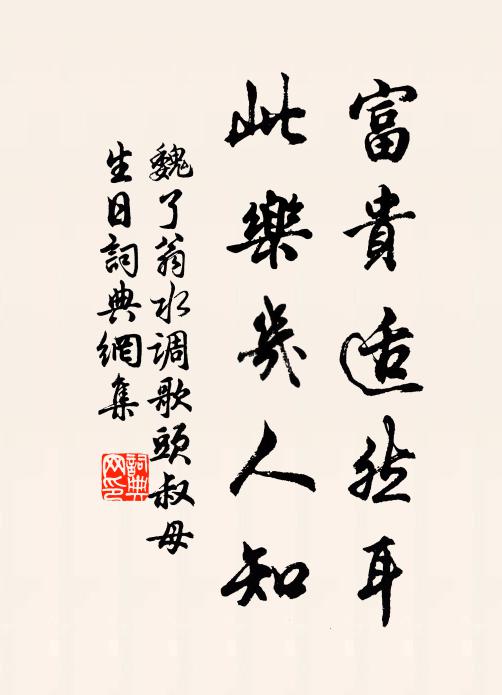 富貴适然耳
此樂幾人知
魏了翁水调歌頭叔母
生日詞典網集
詞典網印